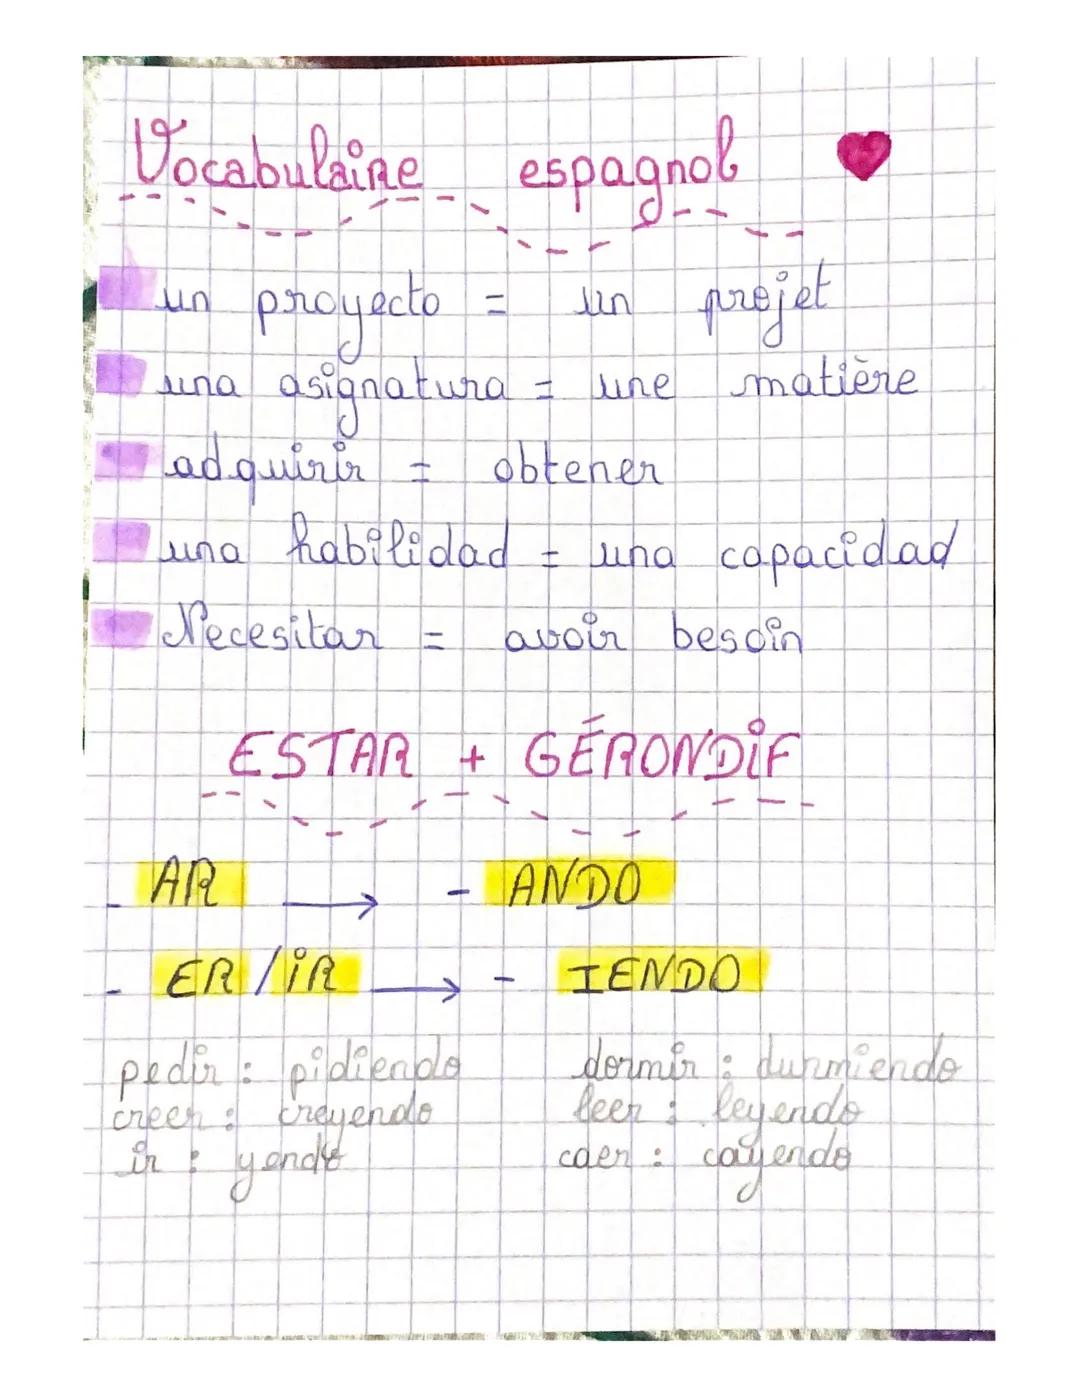 Vocabulaire espagnol
un proyecto = un projet
una asignatura = une matière
adquirir = obtener
una habilidad = una capacidad
Necesitar = avoir besoin
ESTAR + GÉRONDIF
- AR → - ANDO
- ER / IR → - IENDO
pedir : pidiendo dormir : durmiendo
creer : creyendo leer : leyendo
ir : yendo caer : cayendo